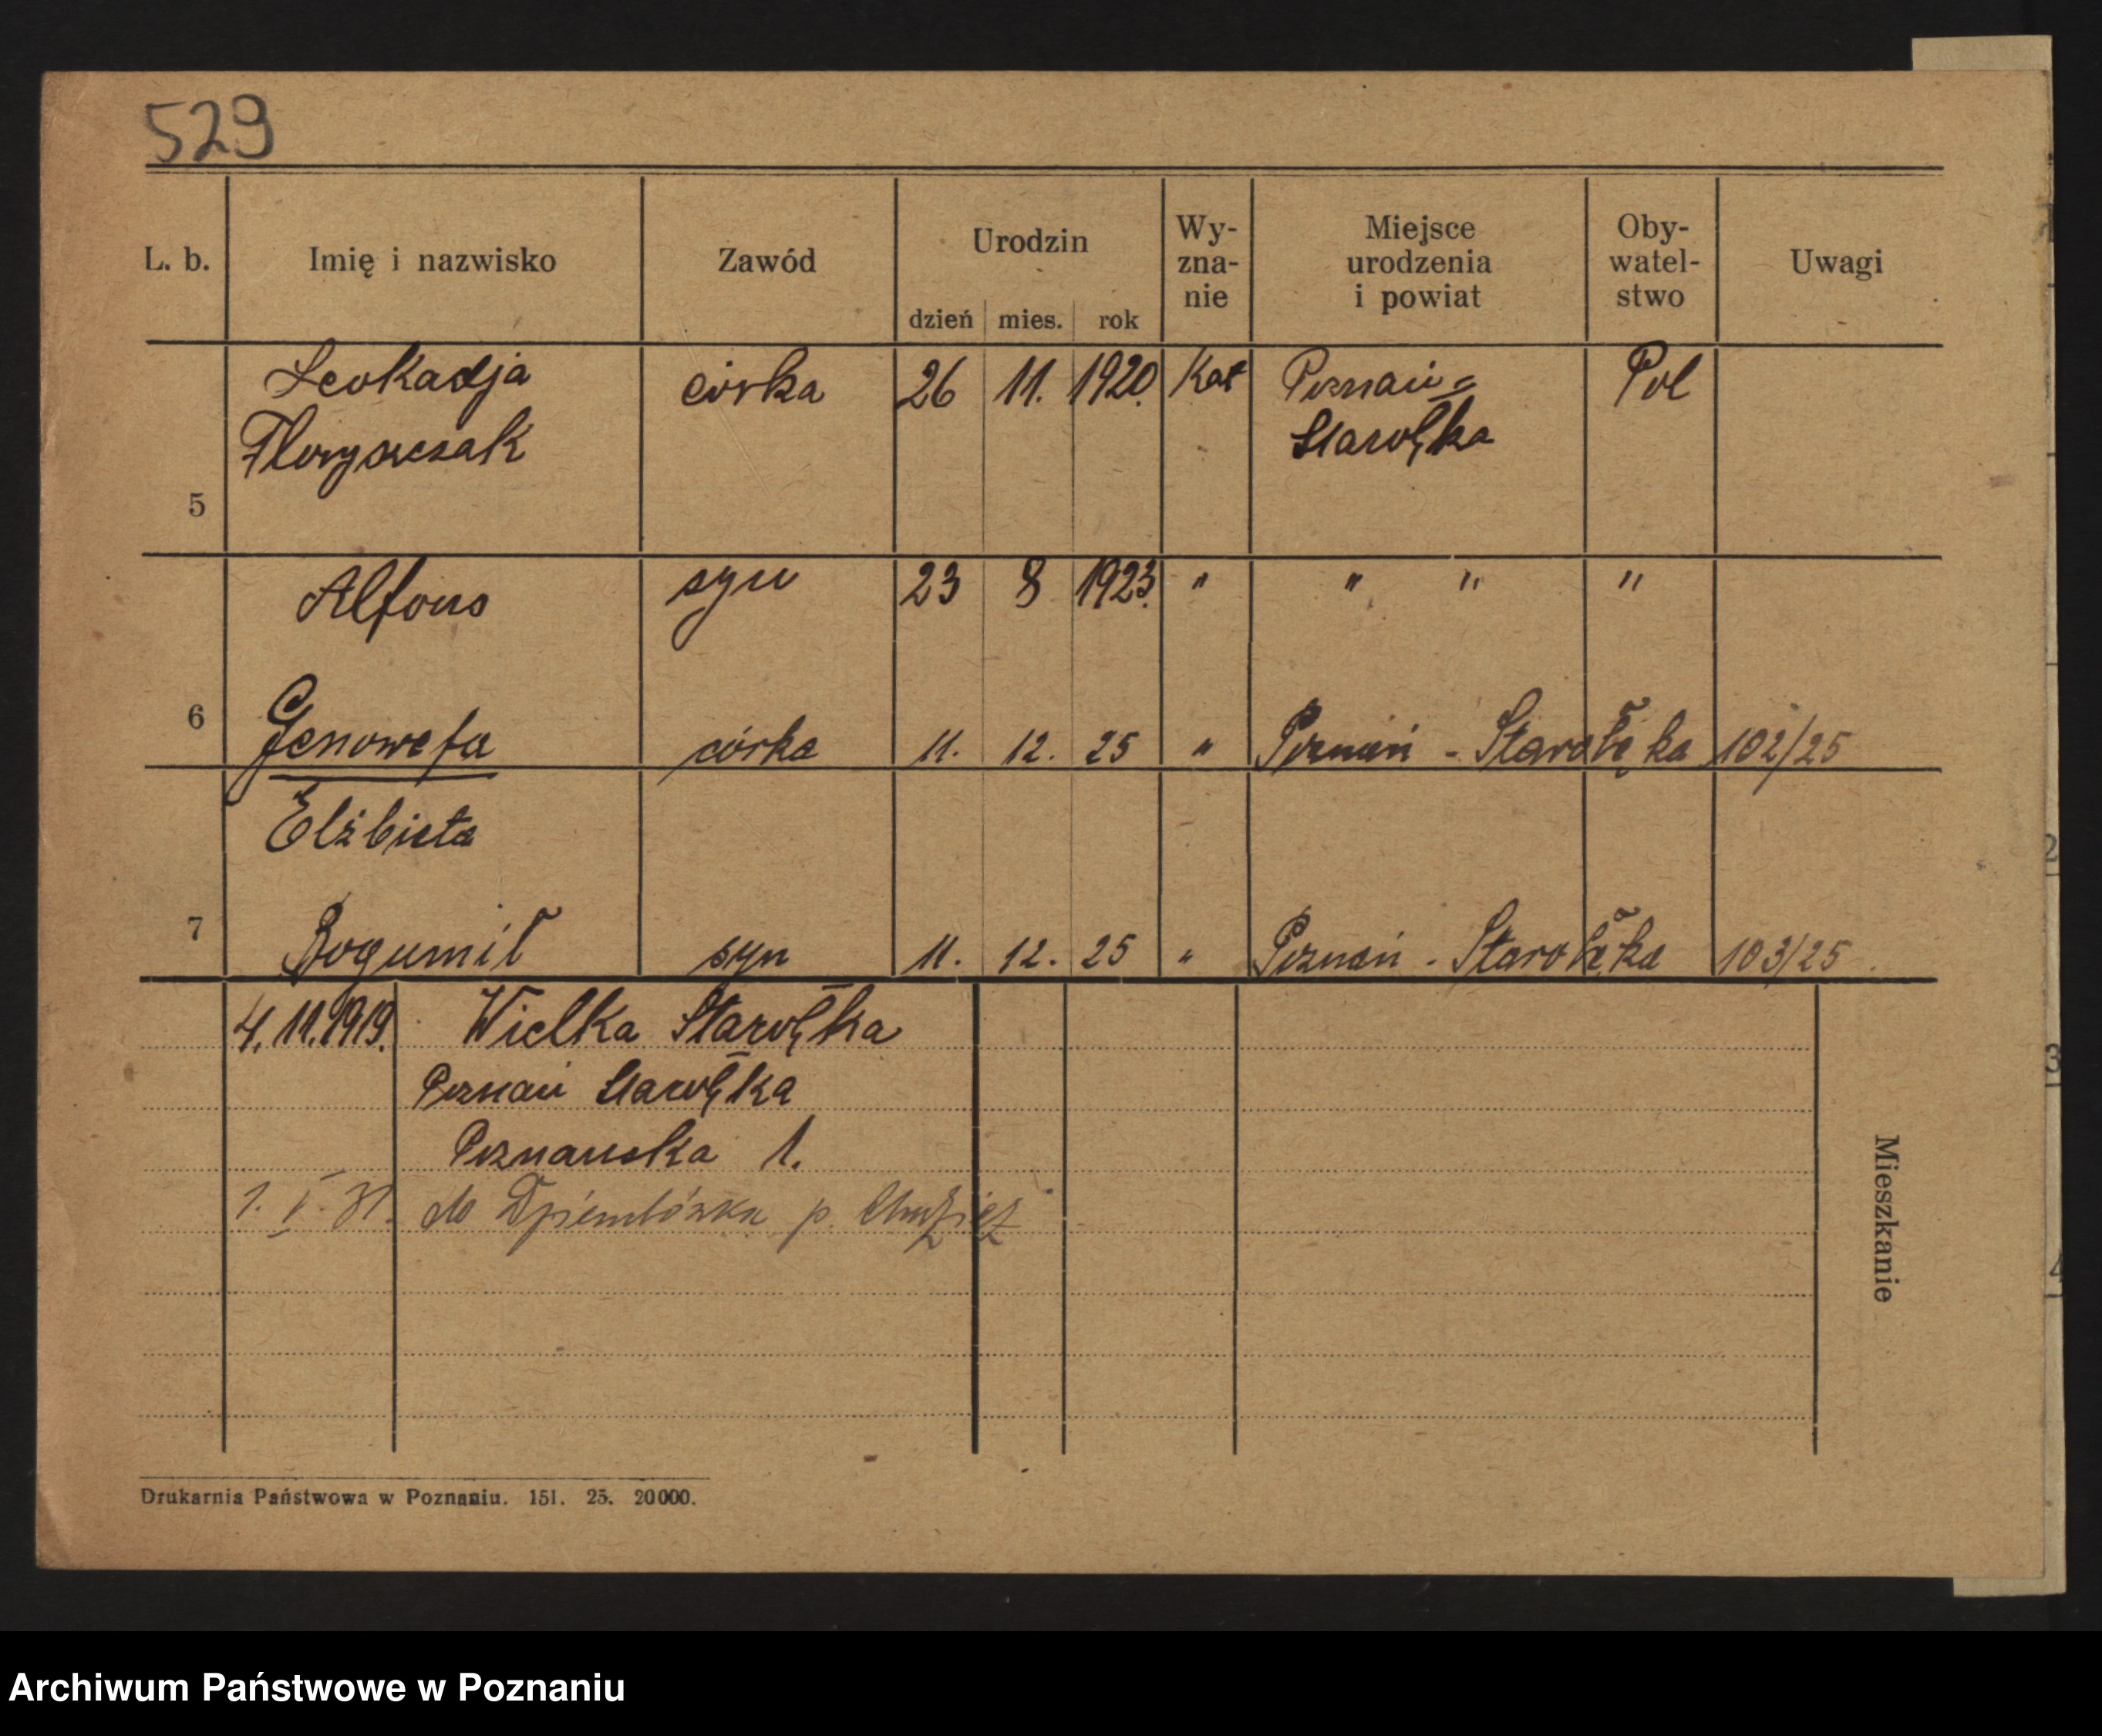 529
L. b. Imię i nazwisko Zawód Urodzin Wy-zna-nie Miejsce urodzenia i powiat Oby-watel-stwo Uwagi
dzień mies. rok
Leokadja córka 26 11. 1920. Kat Poznań= Pol
Floryszczak Starołęka
5
Alfons syn 23 8 1923. " " " "
6 Genowefa córka 11. 12. 25 " Poznań - Starołęka 102/25
Elżbieta
7 Bogumił syn 11. 12. 25 " Poznań - Starołęka 103/25.
4.11.1919. Wielka Starołęka
Poznań Starołęka
Poznańska 1.
1. V. 31. do p. Chodzież
Mieszkanie
Drukarnia Państwowa w Poznaniu. 151. 25. 20000.
2
3
4
Archiwum Państwowe w Poznaniu